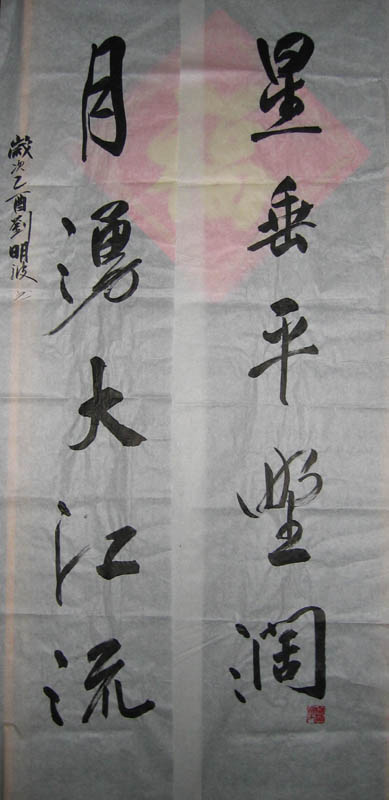 星垂平野濶
月湧大江流
歲次乙酉劉明波